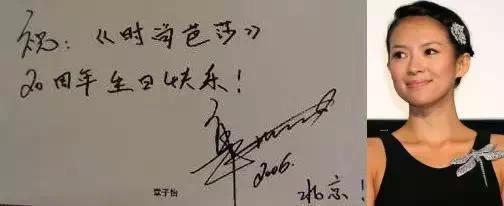 祝：《时尚芭莎》
20周年生日快乐！
章子怡
2006.
北京！